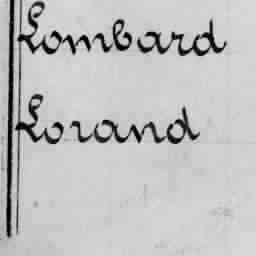 Lombard
Lorand